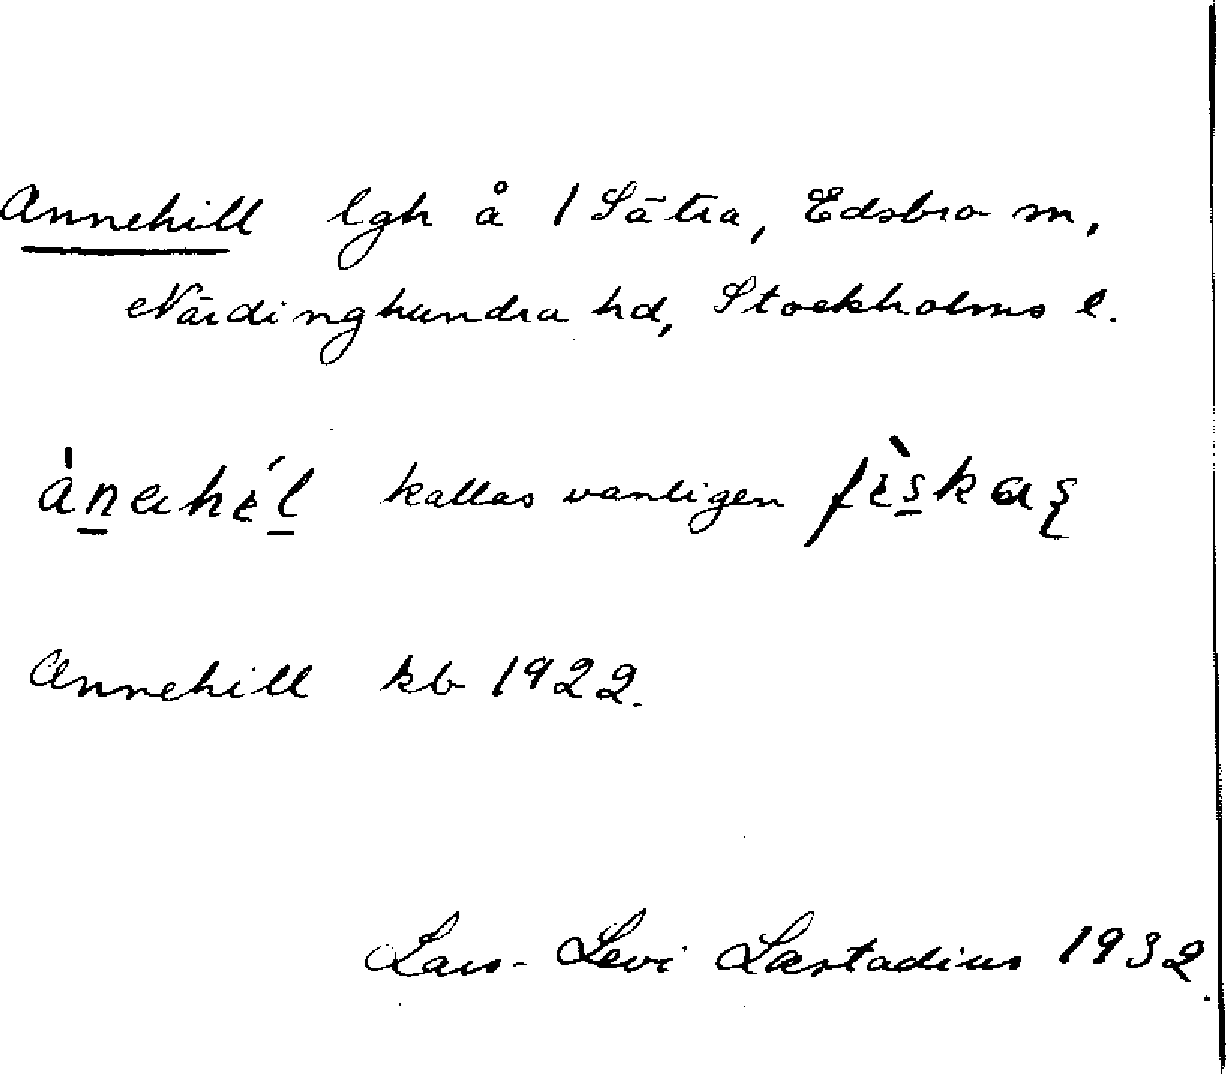 Annehill lgh å 1 Sätra, Edsbro sn,
Närdinghundra hd, Stockholms l.
ànahél kallas vanligen fìskas
Annehill kb 1922.
Lars-Levi Læstadius 1932.